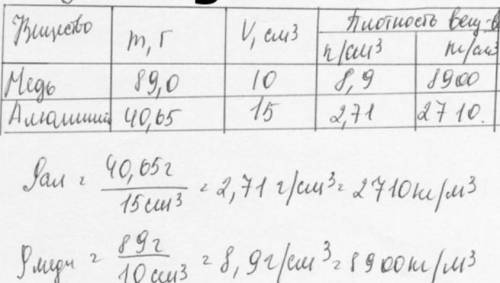 Вещество m, г V, см³ Плотность вещ-в
г/см³ кг/см³
Медь 89,0 10 8,9 8900
Алюминий 40,65 15 2,71 2710.
ρал = 40,65г / 15см³ = 2,71 г/см³ = 2710кг/м³
ρмеди = 89г / 10см³ = 8,9г/см³ = 8900кг/м³